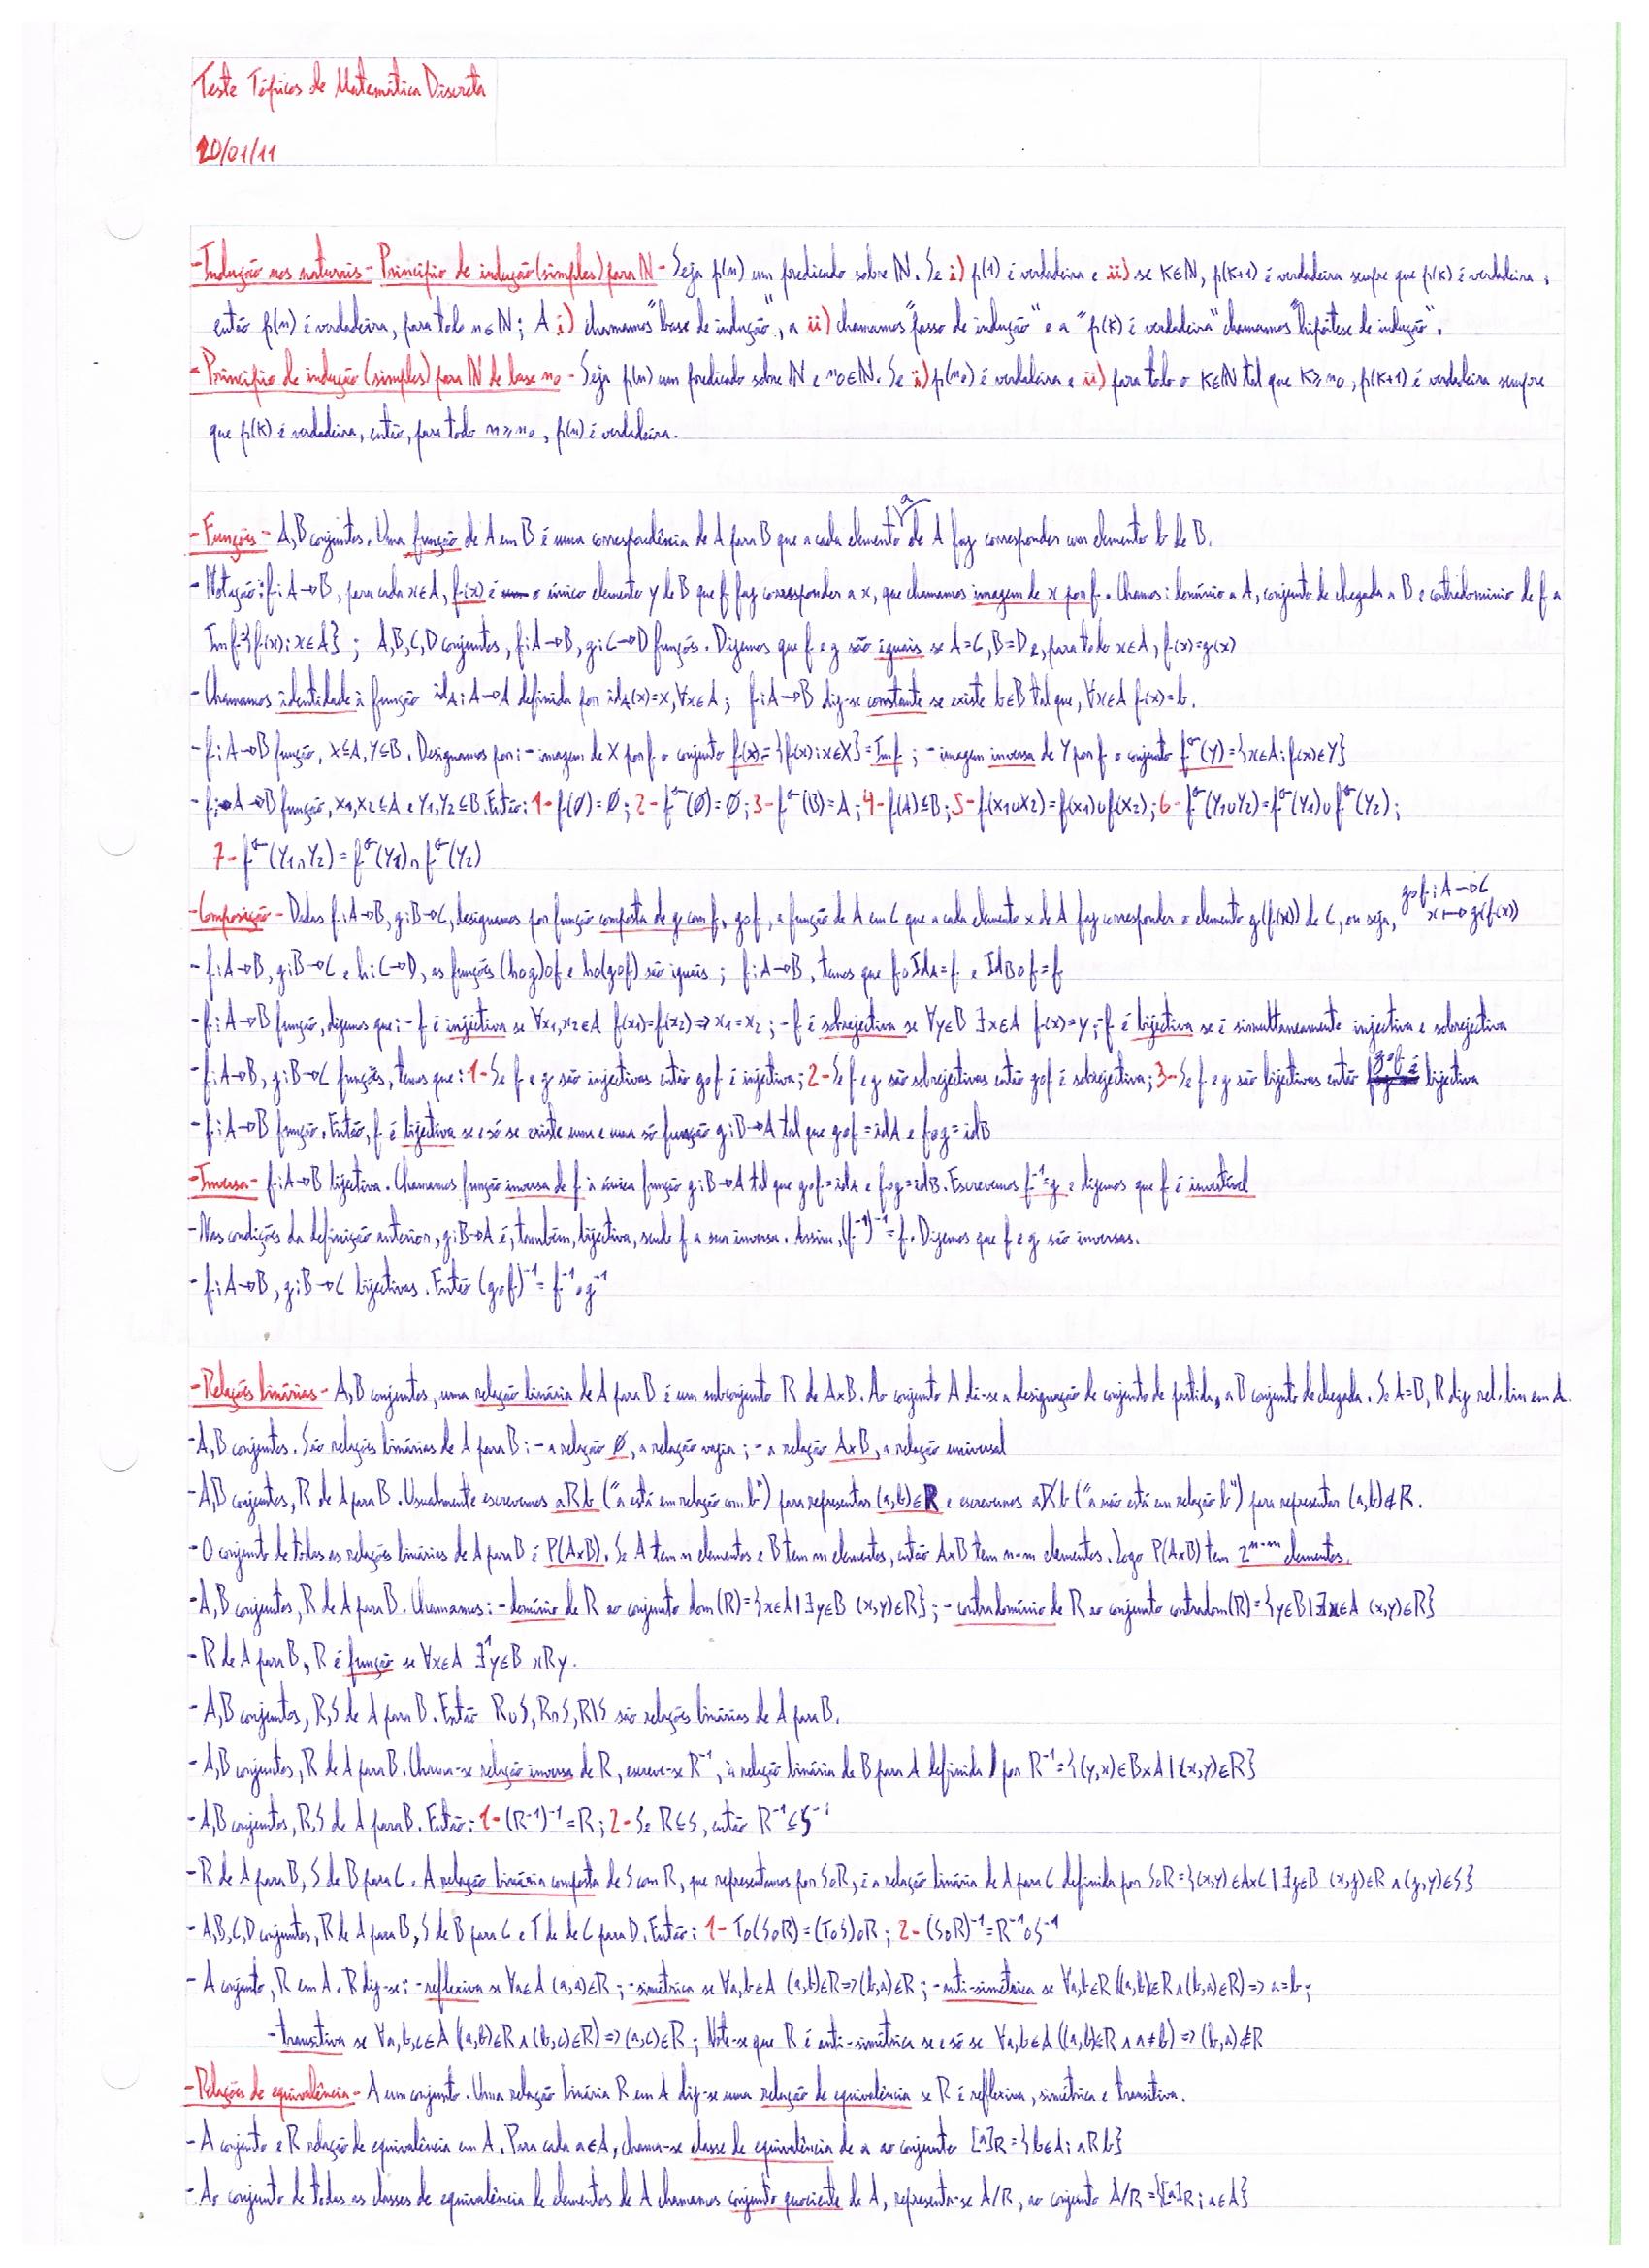 Teste Tópicos de Matemática Discreta
20/01/11
- Indução nos naturais - Princípio de indução (simples) para ℕ - Seja p(n) um predicado sobre ℕ. Se i) p(1) é verdadeira e ii) se K∈ℕ, p(K+1) é verdadeira sempre que p(K) é verdadeira,
então p(n) é verdadeira, para todo n∈ℕ; A i) chamamos "base de indução", a ii) chamamos "passo de indução" e a "p(K) é verdadeira" chamamos "hipótese de indução".
- Princípio de indução (simples) para ℕ de base n₀ - Seja p(n) um predicado sobre ℕ e n₀∈ℕ. Se i) p(n₀) é verdadeira e ii) para todo o K∈ℕ tal que K⩾n₀, p(K+1) é verdadeira sempre
que p(K) é verdadeira, então, para todo n⩾n₀, p(n) é verdadeira.
- Funções - A,B conjuntos. Uma função de A em B é uma correspondência de A para B que a cada elemento a de A faz corresponder um elemento b de B.
- Notação: f:A→B, para cada x∈A, f(x) é o único elemento y de B que f faz corresponder a x, que chamamos imagem de x por f. Chamos: domínio a A, conjunto de chegada a B e contradomínio de f a
Imf={f(x):x∈A} ; A,B,C,D conjuntos, f:A→B, g:C→D funçõs. Dizemos que f e g são iguais se A=C, B=D e, para todo x∈A, f(x)=g(x)
- Chamamos identidade à função id_A:A→A definida por id_A(x)=x, ∀x∈A; f:A→B diz-se constante se existe b∈B tal que, ∀x∈A f(x)=b.
- f:A→B função, X⊆A, Y⊆B. Designamos por: - imagem de X por f o conjunto f(x)={f(x):x∈X}=Imf ; - imagem inversa de Y por f o conjunto f^←(Y)={x∈A:f(x)∈Y}
- f:A→B função, X₁,X₂⊆A e Y₁,Y₂⊆B. Então: 1- f(∅)=∅; 2- f^←(∅)=∅; 3- f^←(B)=A; 4- f(A)⊆B; 5- f(X₁∪X₂)=f(X₁)∪f(X₂); 6- f^←(Y₁∪Y₂)=f^←(Y₁)∪f^←(Y₂);
7- f^←(Y₁∩Y₂)=f^←(Y₁)∩f^←(Y₂)
- Composição - Dadas f:A→B, g:B→C, designamos por função composta de g com f, g∘f, a função de A em C que a cada elemento x de A faz corresponder o elemento g(f(x)) de C, ou seja, g∘f:A→C
x↦g(f(x))
- f:A→B, g:B→C e h:C→D, as funções (h∘g)∘f e h∘(g∘f) são iguais ; f:A→B, temos que f∘Id_A=f e Id_B∘f=f
- f:A→B função, dizemos que: - f é injectiva se ∀x₁,x₂∈A f(x₁)=f(x₂)⇒x₁=x₂ ; - f é sobrejectiva se ∀y∈B ∃x∈A f(x)=y; - f é bijectiva se é simultaneamente injectiva e sobrejectiva
- f:A→B, g:B→C funções, temos que: 1- Se f e g são injectivas então g∘f é injectiva; 2- Se f e g são sobrejectivas então g∘f é sobrejectiva; 3- Se f e g são bijectivas então g∘f é bijectiva
- f:A→B função. Então, f é bijectiva se e só se existe uma e uma só função g:B→A tal que g∘f=idA e f∘g=idB
- Inversa - f:A→B bijectiva. Chamamos função inversa de f à única função g:B→A tal que g∘f=id_A e f∘g=id_B. Escrevemos f⁻¹=g e dizemos que f é invertível
- Nas condições da definição anterior, g:B→A é, também, bijectiva, sendo f a sua inversa. Assim, (f⁻¹)⁻¹=f. Dizemos que f e g são inversas.
- f:A→B, g:B→C bijectivas. Então (g∘f)⁻¹=f⁻¹∘g⁻¹
- Relações binárias - A,B conjuntos, uma relação binária de A para B é um subconjunto R de A×B. Ao conjunto A dá-se a designação de conjunto de partida, a B conjunto de chegada. Se A=B, R diz rel. bin em A.
- A,B conjuntos. São relações binárias de A para B: - a relação ∅, a relação vazia ; - a relação A×B, a relação universal
- A,B conjuntos, R de A para B. Usualmente escrevemos aRb ("a está em relação com b") para representar (a,b)∈R e escrevemos aR̸b ("a não está em relação b") para representar (a,b)∉R.
- O conjunto de todas as relações binárias de A para B é P(A×B). Se A tem n elementos e B tem m elementos, então A×B tem n·m elementos. Logo P(A×B) tem 2^{n·m} elementos.
- A,B conjuntos, R de A para B. Chamamos: - domínio de R ao conjunto dom(R)={x∈A|∃y∈B (x,y)∈R}; - contradomínio de R ao conjunto contradom(R)={y∈B|∃x∈A (x,y)∈R}
- R de A para B, R é função se ∀x∈A ∃¹y∈B xRy.
- A,B conjuntos, R,S de A para B. Então R∪S, R∩S, R\S são relações binárias de A para B.
- A,B conjuntos, R de A para B. Chama-se relação inversa de R, escreve-se R⁻¹, à relação binária de B para A definida por R⁻¹={(y,x)∈B×A|(x,y)∈R}
- A,B conjuntos, R,S de A para B. Então: 1- (R⁻¹)⁻¹=R; 2- Se R⊆S, então R⁻¹⊆S⁻¹
- R de A para B, S de B para C. A relação binária composta de S com R, que representamos por S∘R, é a relação binária de A para C definida por S∘R={(x,y)∈A×C|∃z∈B (x,z)∈R∧(z,y)∈S}
- A,B,C,D conjuntos, R de A para B, S de B para C e T de de C para D. Então: 1- T∘(S∘R)=(T∘S)∘R ; 2- (S∘R)⁻¹=R⁻¹∘S⁻¹
- A conjunto, R em A. R diz-se: - reflexiva se ∀a∈A (a,a)∈R ; - simétrica se ∀a,b∈A (a,b)∈R⇒(b,a)∈R ; - anti-simétrica se ∀a,b∈R ((a,b)∈R∧(b,a)∈R)⇒a=b;
- transitiva se ∀a,b,c∈A ((a,b)∈R∧(b,c)∈R)⇒(a,c)∈R ; Note-se que R é anti-simétrica se e só se ∀a,b∈A ((a,b)∈R∧a≠b)⇒(b,a)∉R
- Relações de equivalência - A um conjunto. Uma relação binária R em A diz-se uma relação de equivalência se R é reflexiva, simétrica e transitiva.
- A conjunto e R relação de equivalência em A. Para cada a∈A, chama-se classe de equivalência de a ao conjunto [a]R={b∈A:aRb}
- Ao conjunto de todas as classes de equivalência de elementos de A chamamos conjunto quociente de A, representa-se A/R, ao conjunto A/R={[a]R:a∈A}